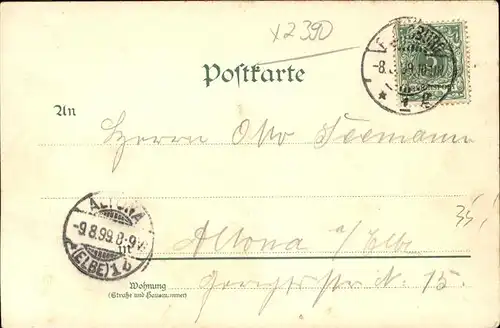 x2390
Postkarte
-8.8.99.
An
Herrn Otto Seemann
ALTONA
-9.8.99.8-9V.
(ELBE) 1 b
in
Altona a/Elbe
Georgstr. N. 15.
Wohnung
(Straße und Hausnummer)